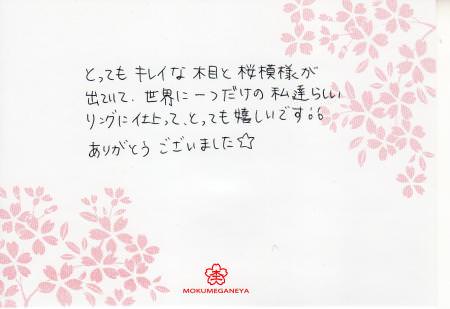 とっても キレイな 木目と 桜模様が
出ていて、世界に一つだけの 私達らしい
リングに仕上って、とっても嬉しいです。。
ありがとう ございました☆
MOKUMEGANEYA